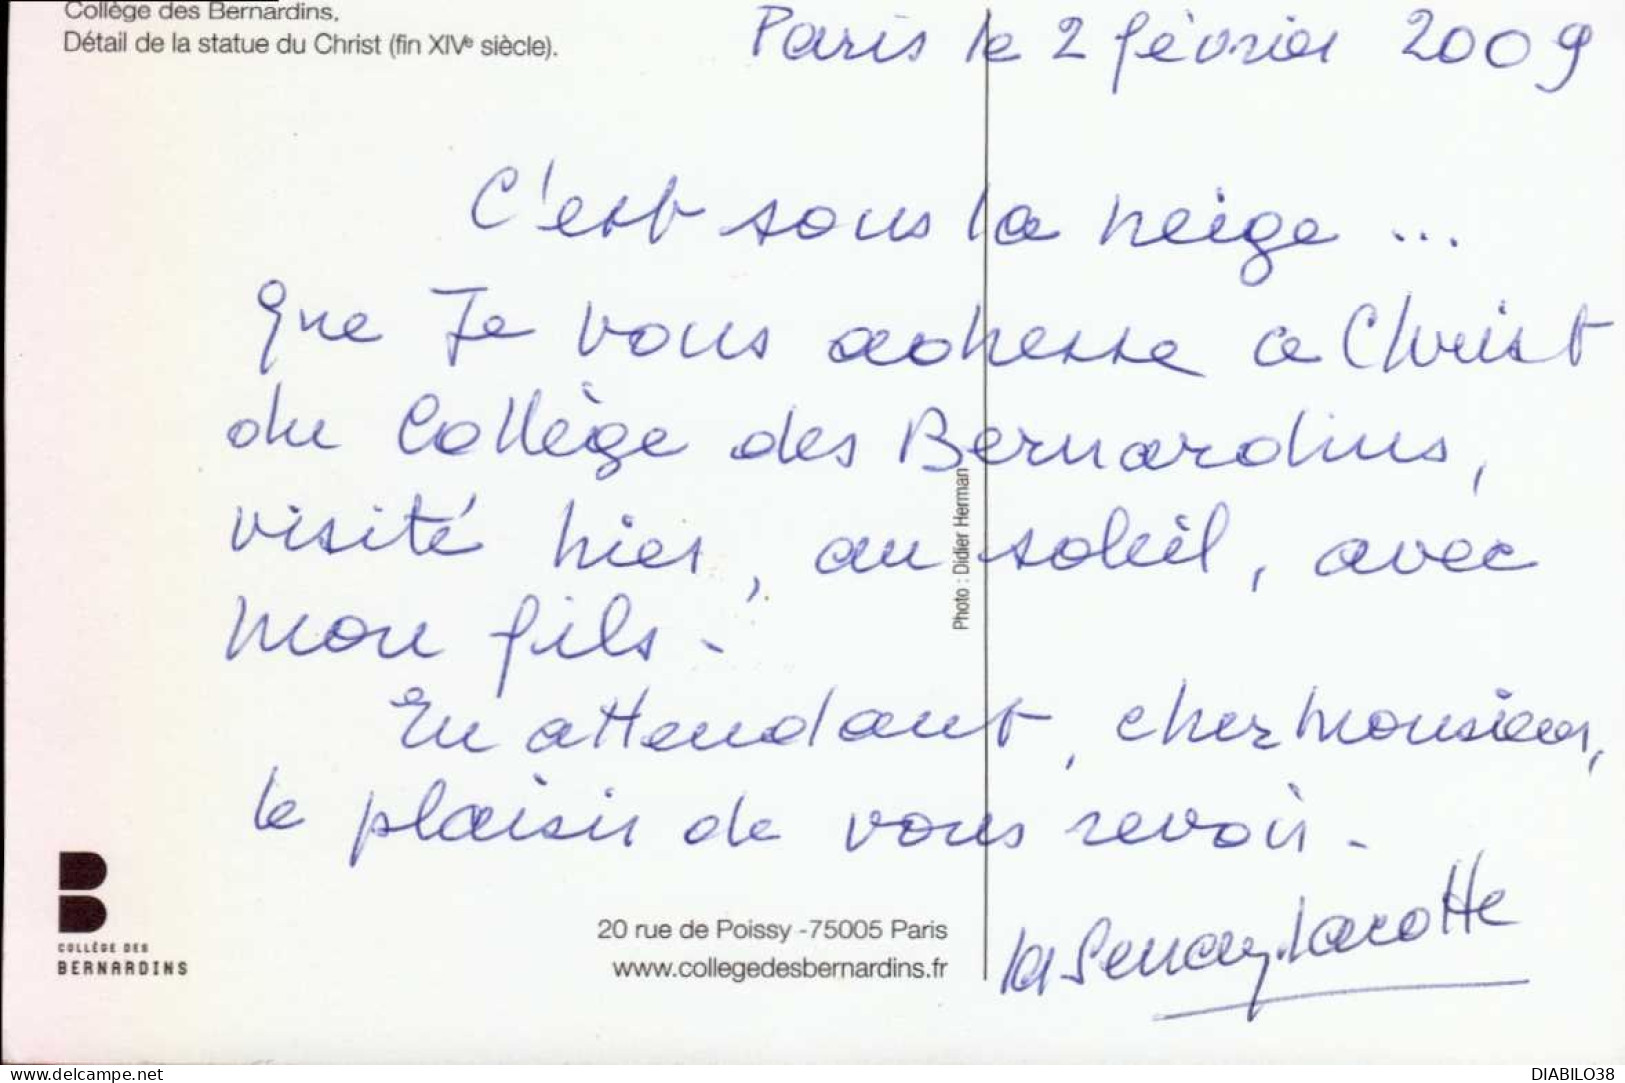 Collège des Bernardins.
Détail de la statue du Christ (fin XIVe siècle).
Paris le 2 février 2009
C'est sous la neige ...
que Je vous adresse ce Christ
du Collège des Bernardins,
visité hier, au soleil, avec
mon fils.
En attendant, cher Monsieur,
le plaisir de vous revoir.
Lacotte
Photo : Didier Herman
COLLÈGE DES
BERNARDINS
20 rue de Poissy -75005 Paris
www.collegedesbernardins.fr
www.delcampe.net
DIABILO38